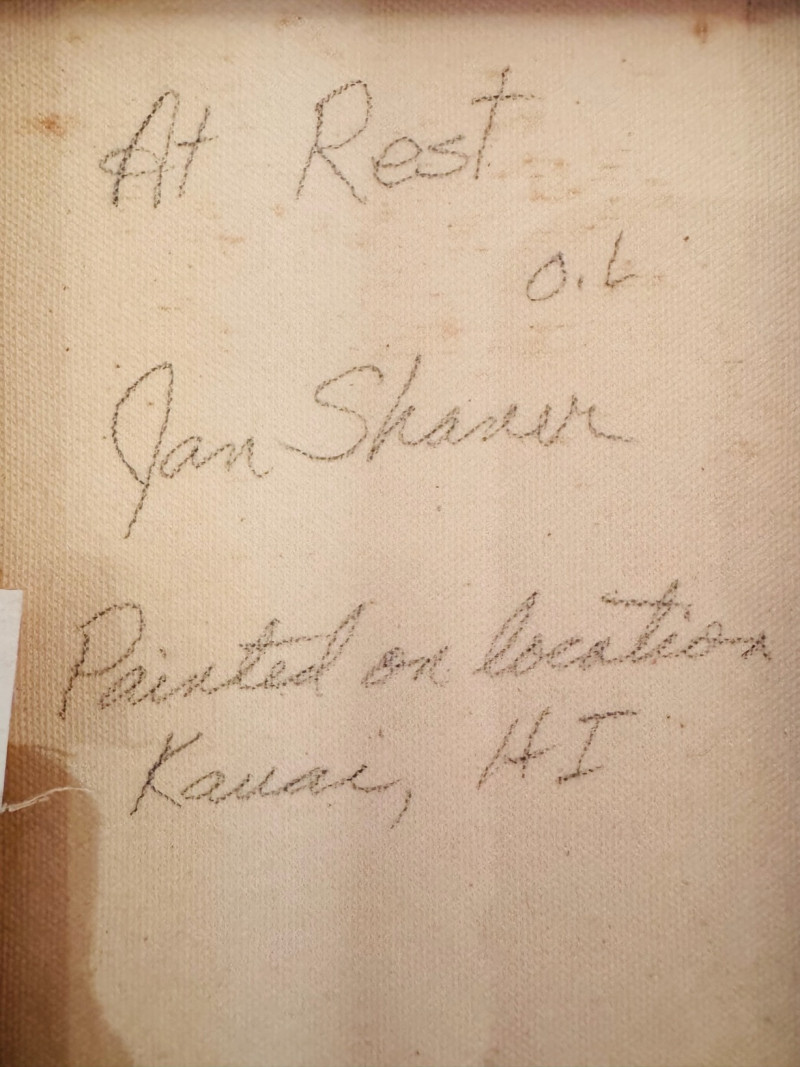 At Rest
oil
Jan Shaner
Painted on location
Kauai, HI